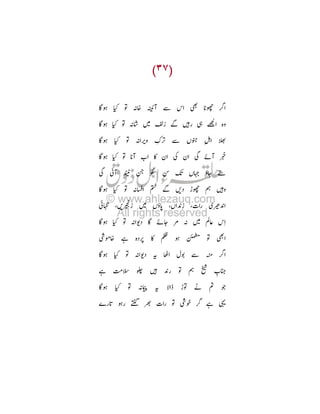 (۳۷)
اگر چھوٹا بھی اس سے آئینہ خانہ تو کیا ہوگا
وہ الجھے ہی رہیں گے زلف میں شانہ تو کیا ہوگا
بھلا اہل جنوں سے ترک ویرانہ تو کیا ہوگا
خبر آئے گی ان کی ان کا اب آنا تو کیا ہوگا
سنے جاؤ جہاں تک سن سکو جن نیند آئے گی
وہیں ہم چھوڑ دیں گے ختم افسانہ تو کیا ہوگا
© www.ahlezauq.com
اندھیری رات، زنداں، پاؤں میں زنجیریں، تنہائی
All rights reserved
اس عالم میں نہ مر جائے گا دیوانہ تو کیا ہوگا
ابھی تو مطمئن ہو ظلم کا پردہ ہے خاموشی
اگر منہ سے بول اٹھا یہ دیوانہ تو کیا ہوگا
جناب شیخ ہم تو رند ہیں چلو سلامت ہے
جو تم نے توڑ ڈالا یہ پیمانہ تو کیا ہوگا
یہی ہے گر خوشی تو رات بھر گنتے رہو تارے